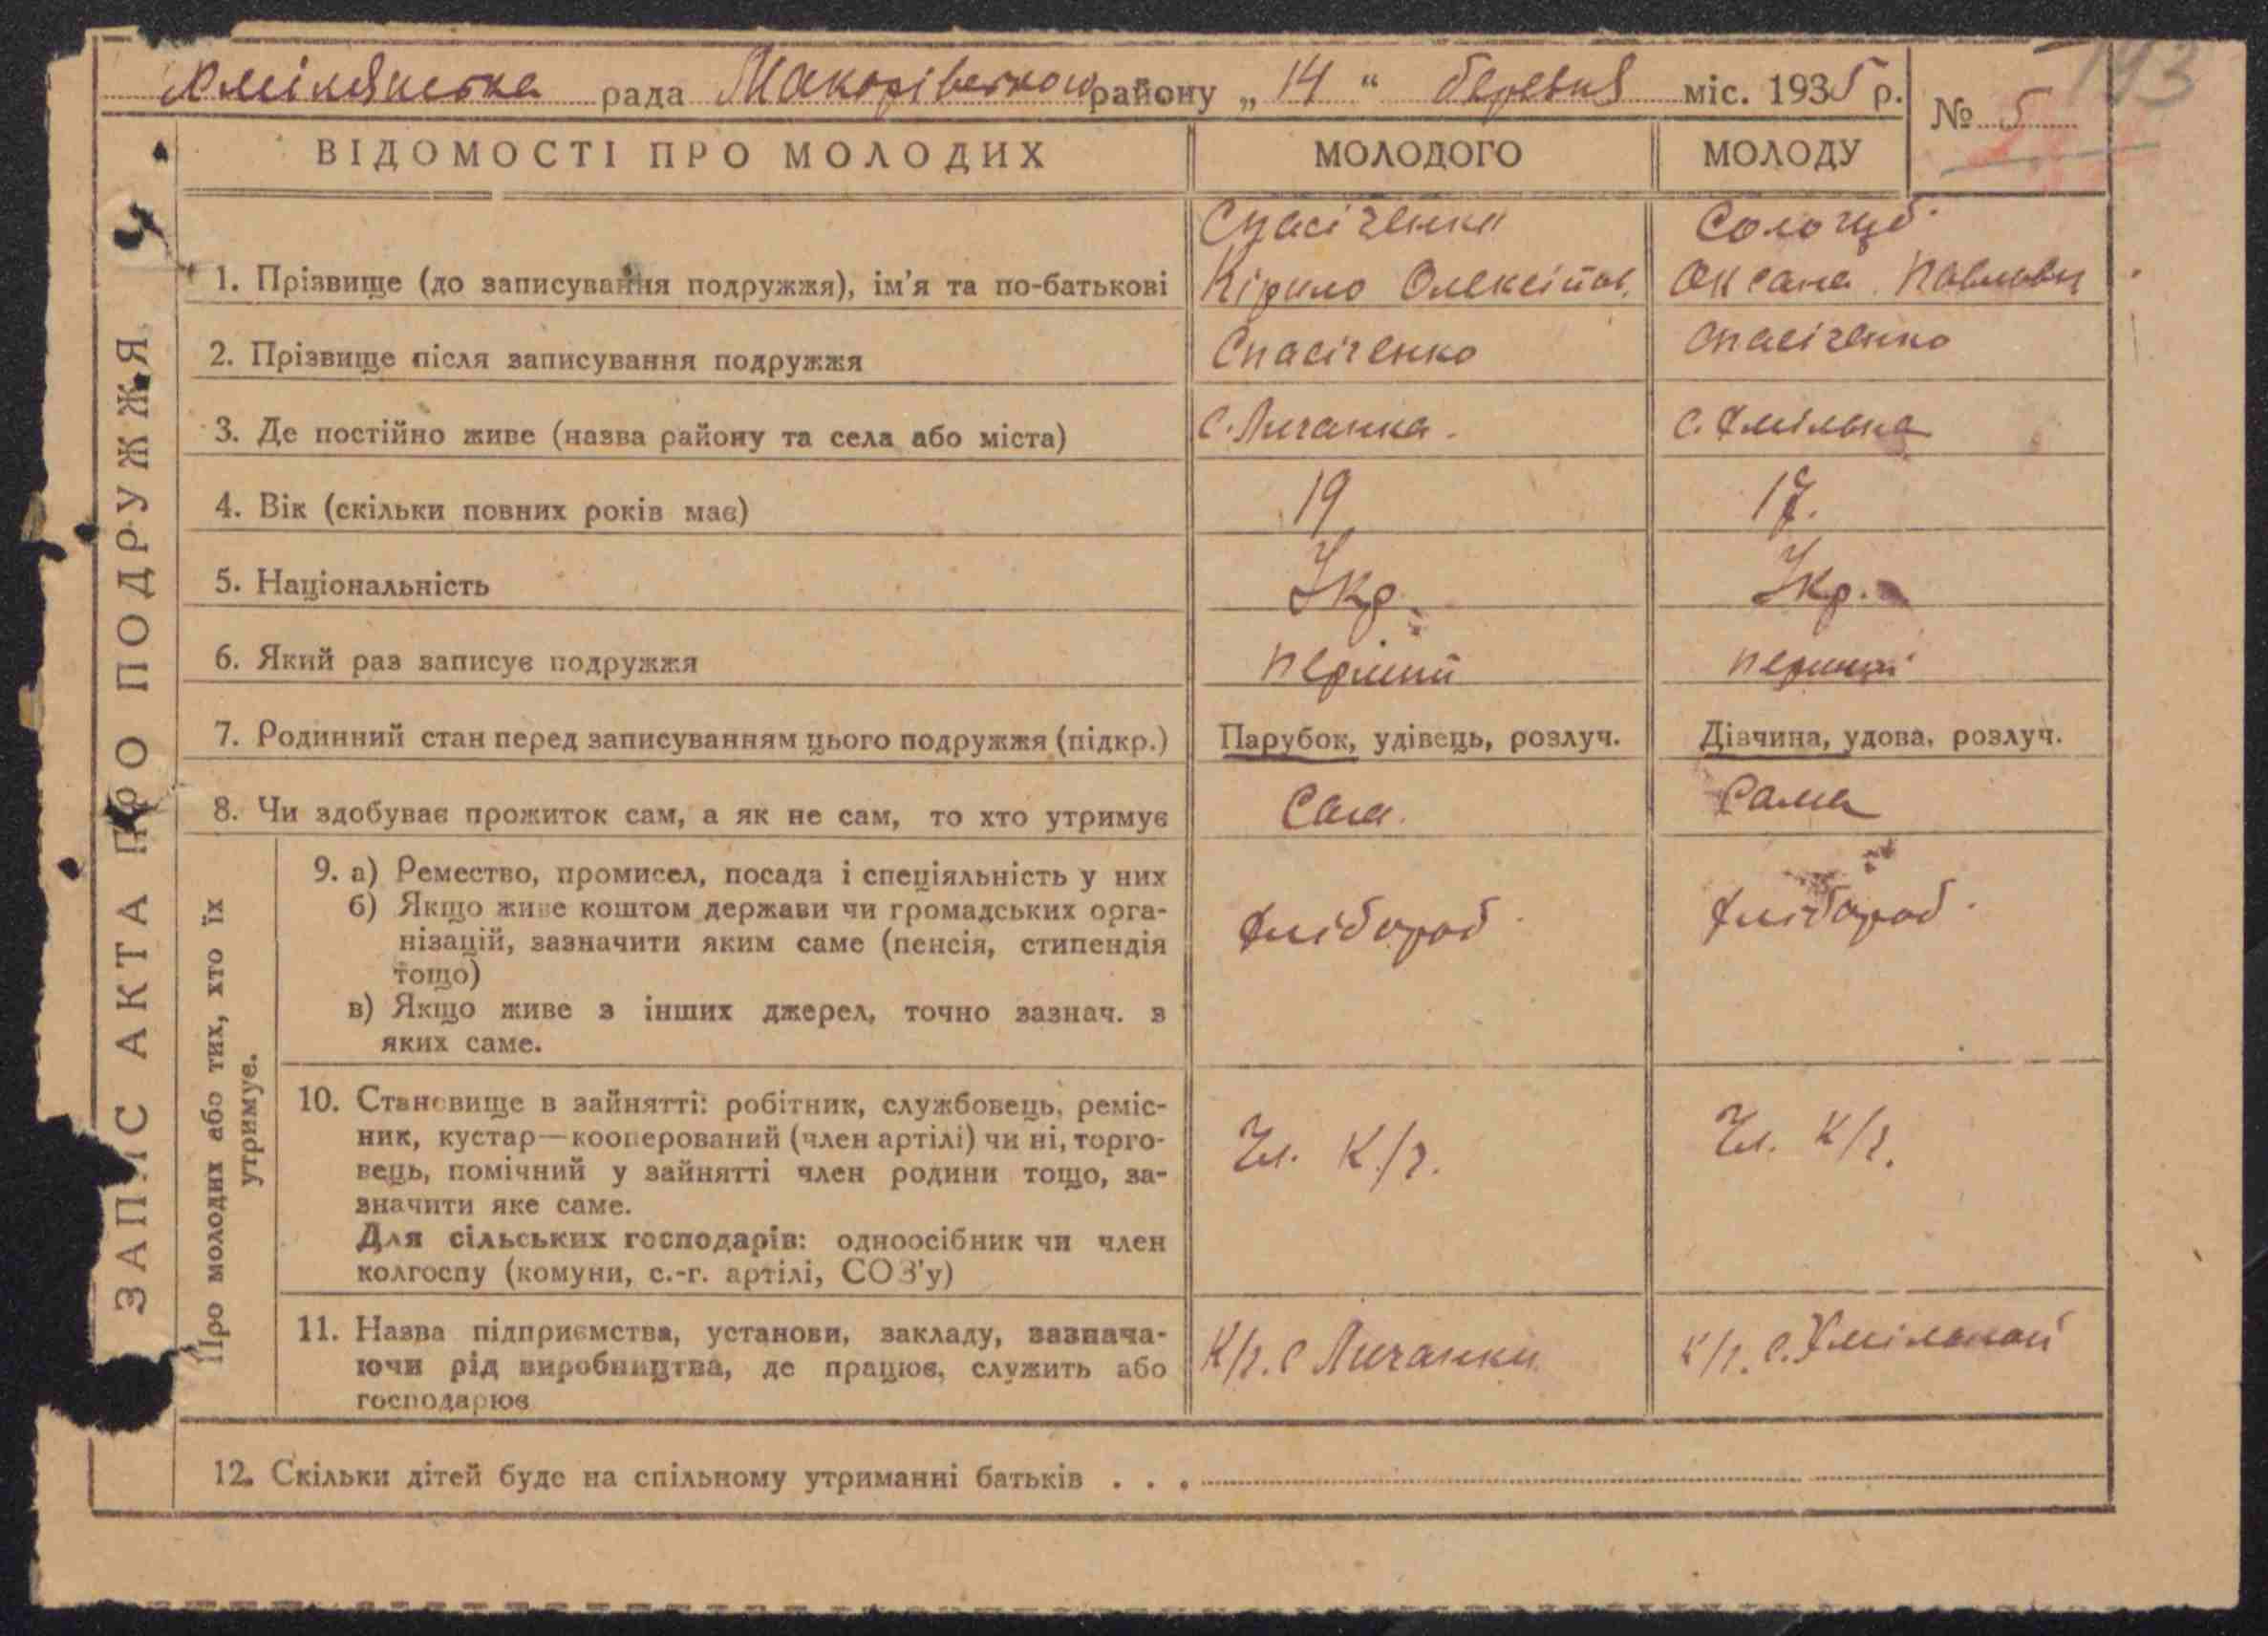 193
Хмілянська рада Макарівського району „ 14 “ березня міс. 1935 р.
№ 5
ЗАПИС АКТА ПРО ПОДРУЖЖЯ
ВІДОМОСТІ ПРО МОЛОДИХ МОЛОДОГО МОЛОДУ
Спасіченко Сологуб
1. Прізвище (до записування подружжя), ім’я та по-батькові Кірило Олексійов. Оксана Павлови
2. Прізвище після записування подружжя Спасіченко Спасіченко
3. Де постійно живе (назва району та села або міста) с. Личанка. с. Хмільна
4. Вік (скільки повних років має) 19 17.
5. Національність Укр. Укр.
6. Який раз записує подружжя перший перший
7. Родинний стан перед записуванням цього подружжя (підкр.) Парубок, удівець, розлуч. Дівчина, удова, розлуч.
8. Чи здобуває прожиток сам, а як не сам, то хто утримує Сам. Сама
Про молодих або тих, хто їх
утримує.
9. а) Ремество, промисел, посада і спеціяльність у них
б) Якщо живе коштом держави чи громадських орга-
нізацій, зазначити яким саме (пенсія, стипендія
тощо)
в) Якщо живе з інших джерел, точно зазнач. з
яких саме.
Хлібороб Хлібороб.
10. Становище в зайнятті: робітник, службовець, реміс-
ник, кустар—кооперований (член артілі) чи ні, торго-
вець, помічний у зайнятті член родини тощо, за-
значити яке саме.
Для сільських господарів: одноосібник чи член
колгоспу (комуни, с.-г. артілі, СОЗ’у)
Чл. К/г. Чл. К/г.
11. Назва підприємства, установи, закладу, зазнача-
ючи рід виробництва, де працює, служить або
господарює
К/г. с Личанки К/г. с. Хмільной
12. Скільки дітей буде на спільному утриманні батьків . . .